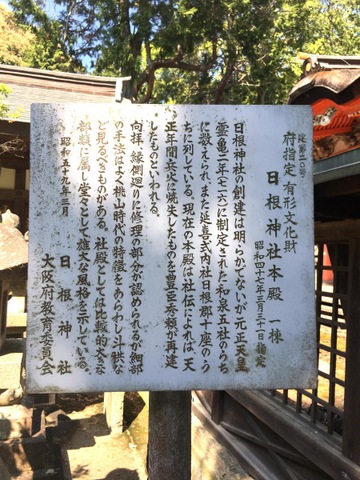 府指定有形文化財
日根神社本殿 一棟
昭和四十七年三月三十一日指定
日根神社の創建は明らかでないが元正天皇
霊亀二年(七一六)に制定された和泉五社のうち
に数えられ、また延喜式内社日根郡十座のう
ちに列している。現在の本殿は社伝によれば、天
正年間兵火に焼失したものを豊臣秀頼が再建
したものといわれる。
向拝、縁側廻りに修理の部分が認められるが細部
の手法はよく桃山時代の特徴をあらわし斗栱な
ど見るべきものがある。社殿としては比較的大きな
部類に属し堂々として雄大な風格を示している。
昭和五十九年三月
日根神社
大阪府教育委員会